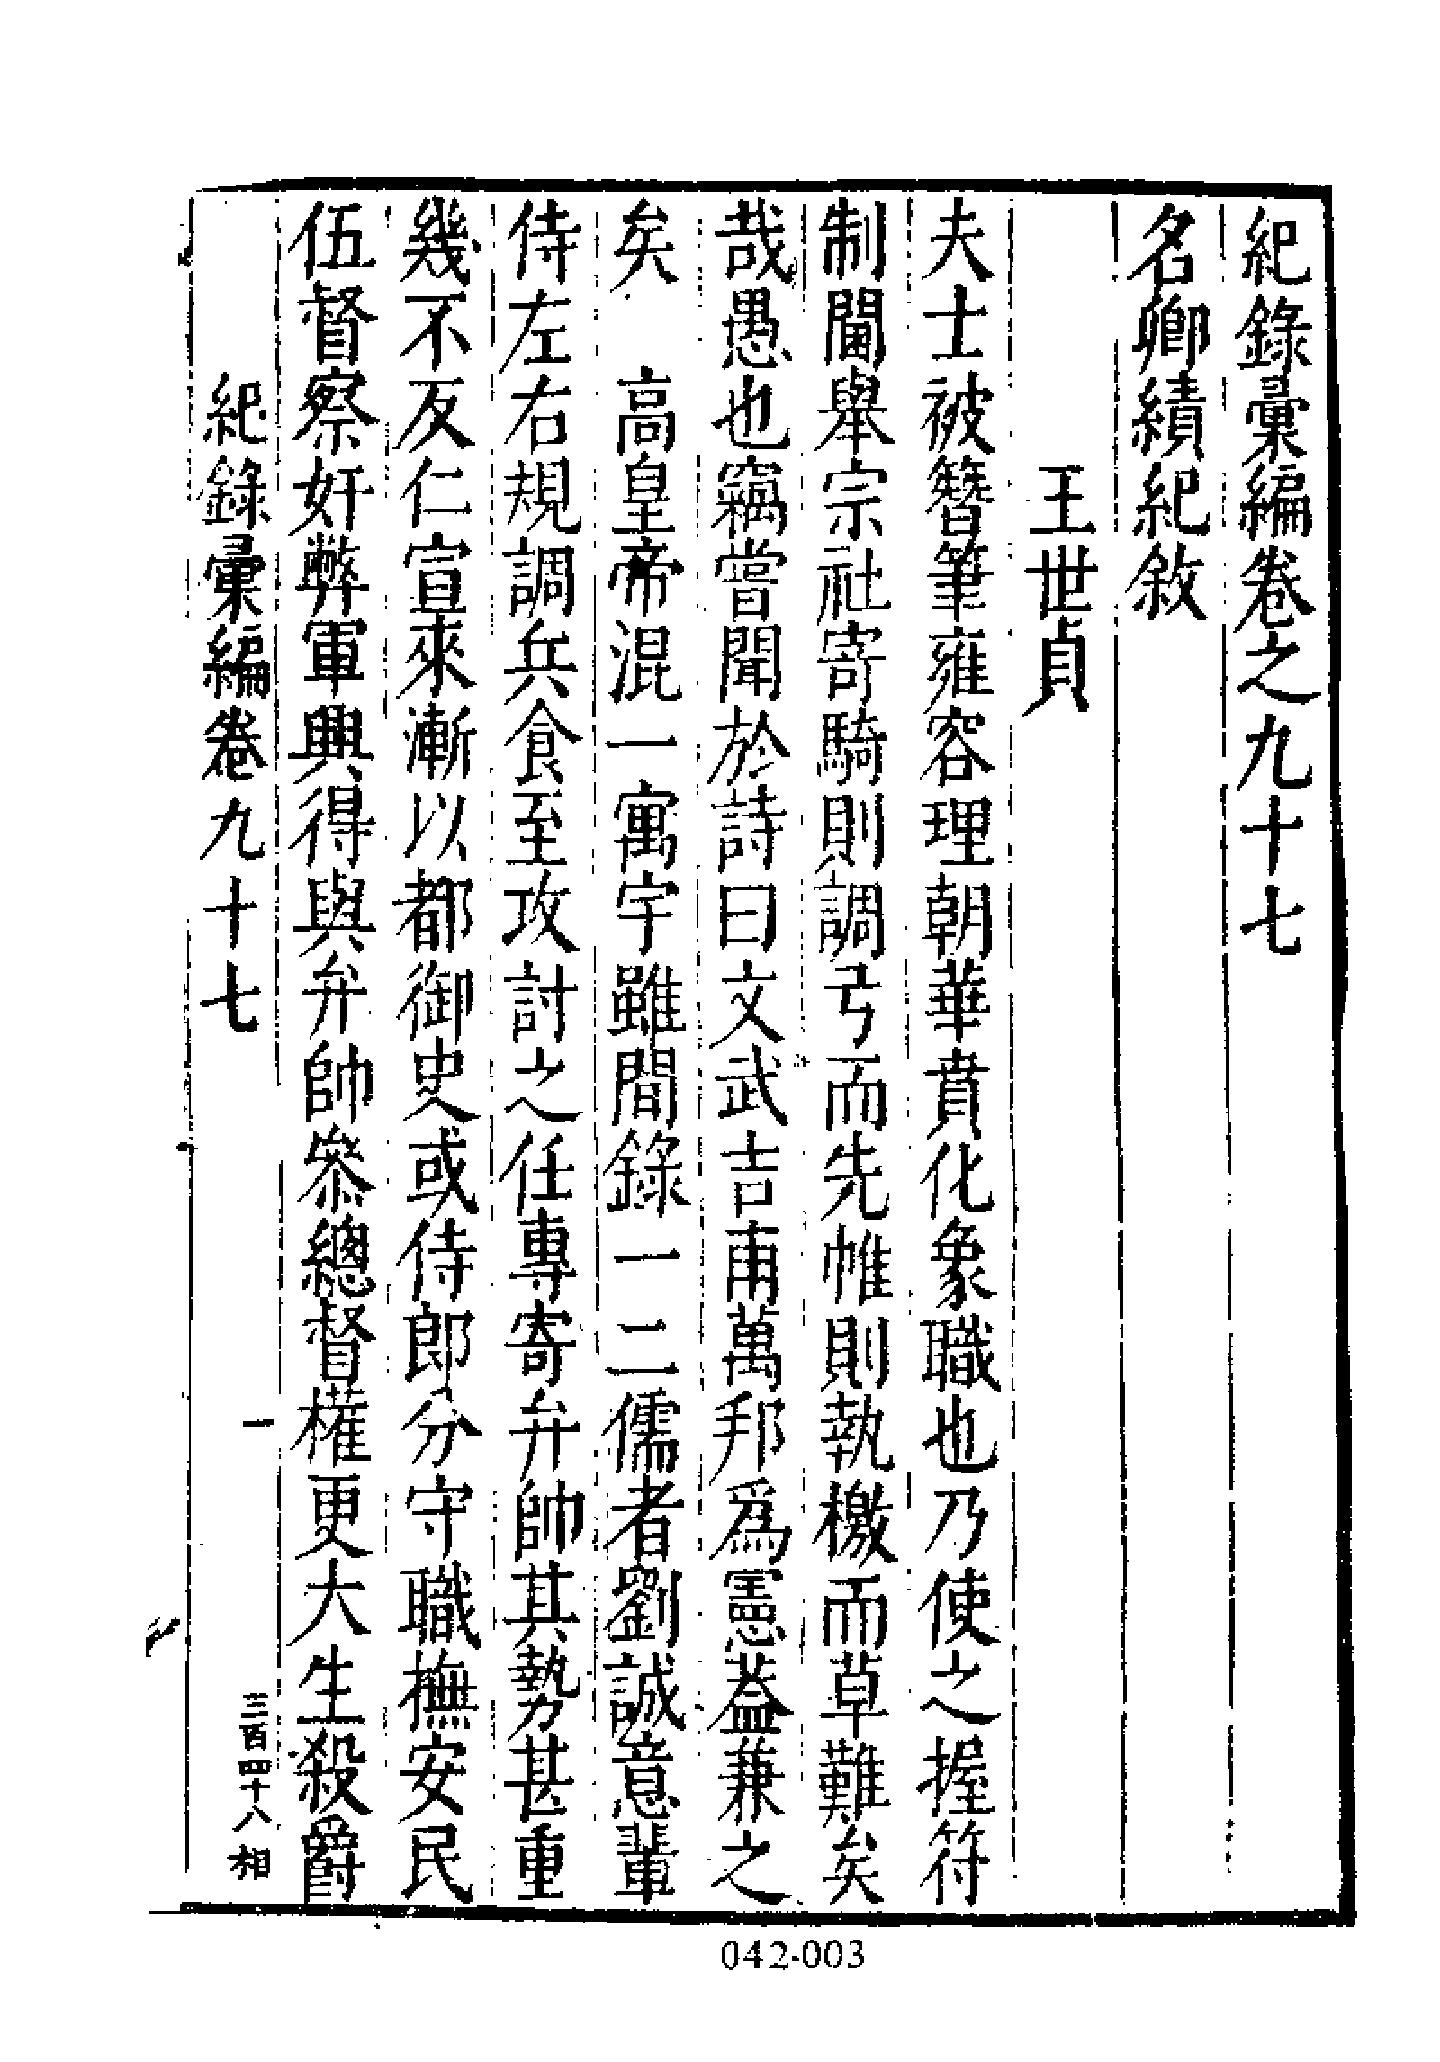 紀錄彙編卷之九十七
名卿績紀敘
王世貞
夫士被簪筆雍容理朝華賁化象職也乃使之握符
制閫舉宗社寄騎則調弓而先帷則執檄而草難矣
哉愚也竊嘗聞於詩曰文武吉甫萬邦爲憲蓋兼之
矣　高皇帝混一寓宇雖間錄一二儒者劉誠意輩
侍左右規調兵食至攻討之任專寄弁帥其勢甚重
幾不反仁宣來漸以都御史或侍郎分守職撫安民
伍督察奸弊軍興得與弁帥參總督權更大生殺爵
紀錄彙編卷九十七　一　三百四十八　相
042-003